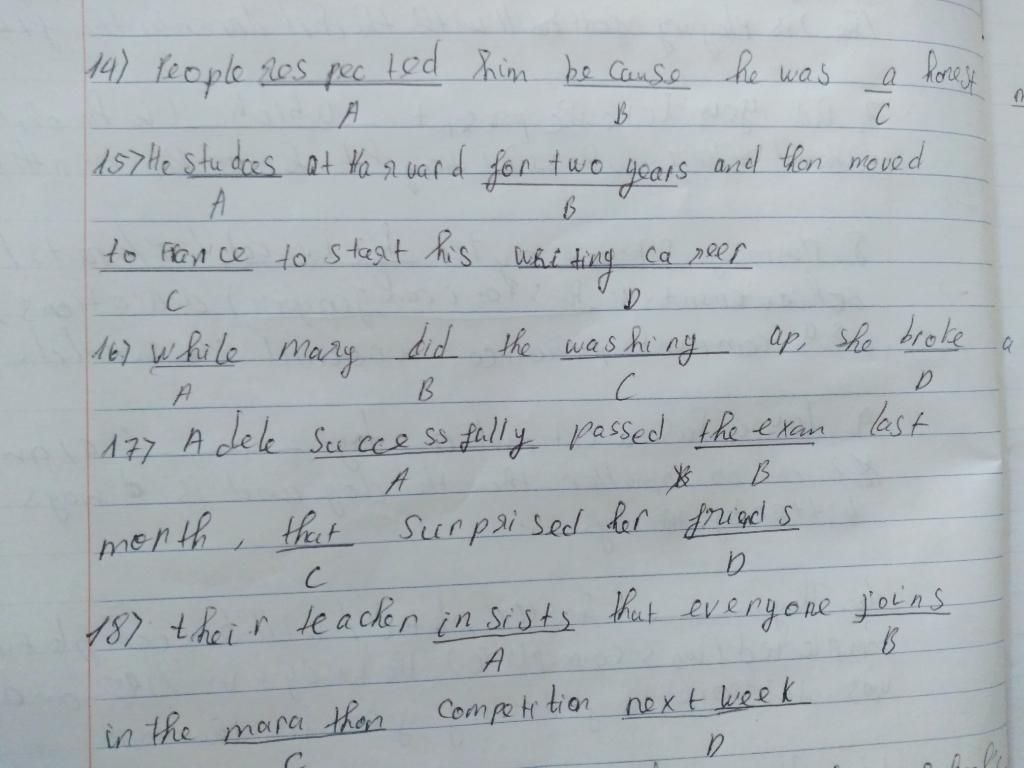 14) People respected him because he was a honest
A B C
15) He studees at Harvard for two years and then moved
A B
to France to start his writing career
C D
16) while mary did the washing up, she broke a
A B C D
17) Adele successfully passed the exam last
A B
month, that surprised her friends
C D
18) their teacher insists that everyone joins
A B
in the marathon competition next week
C D